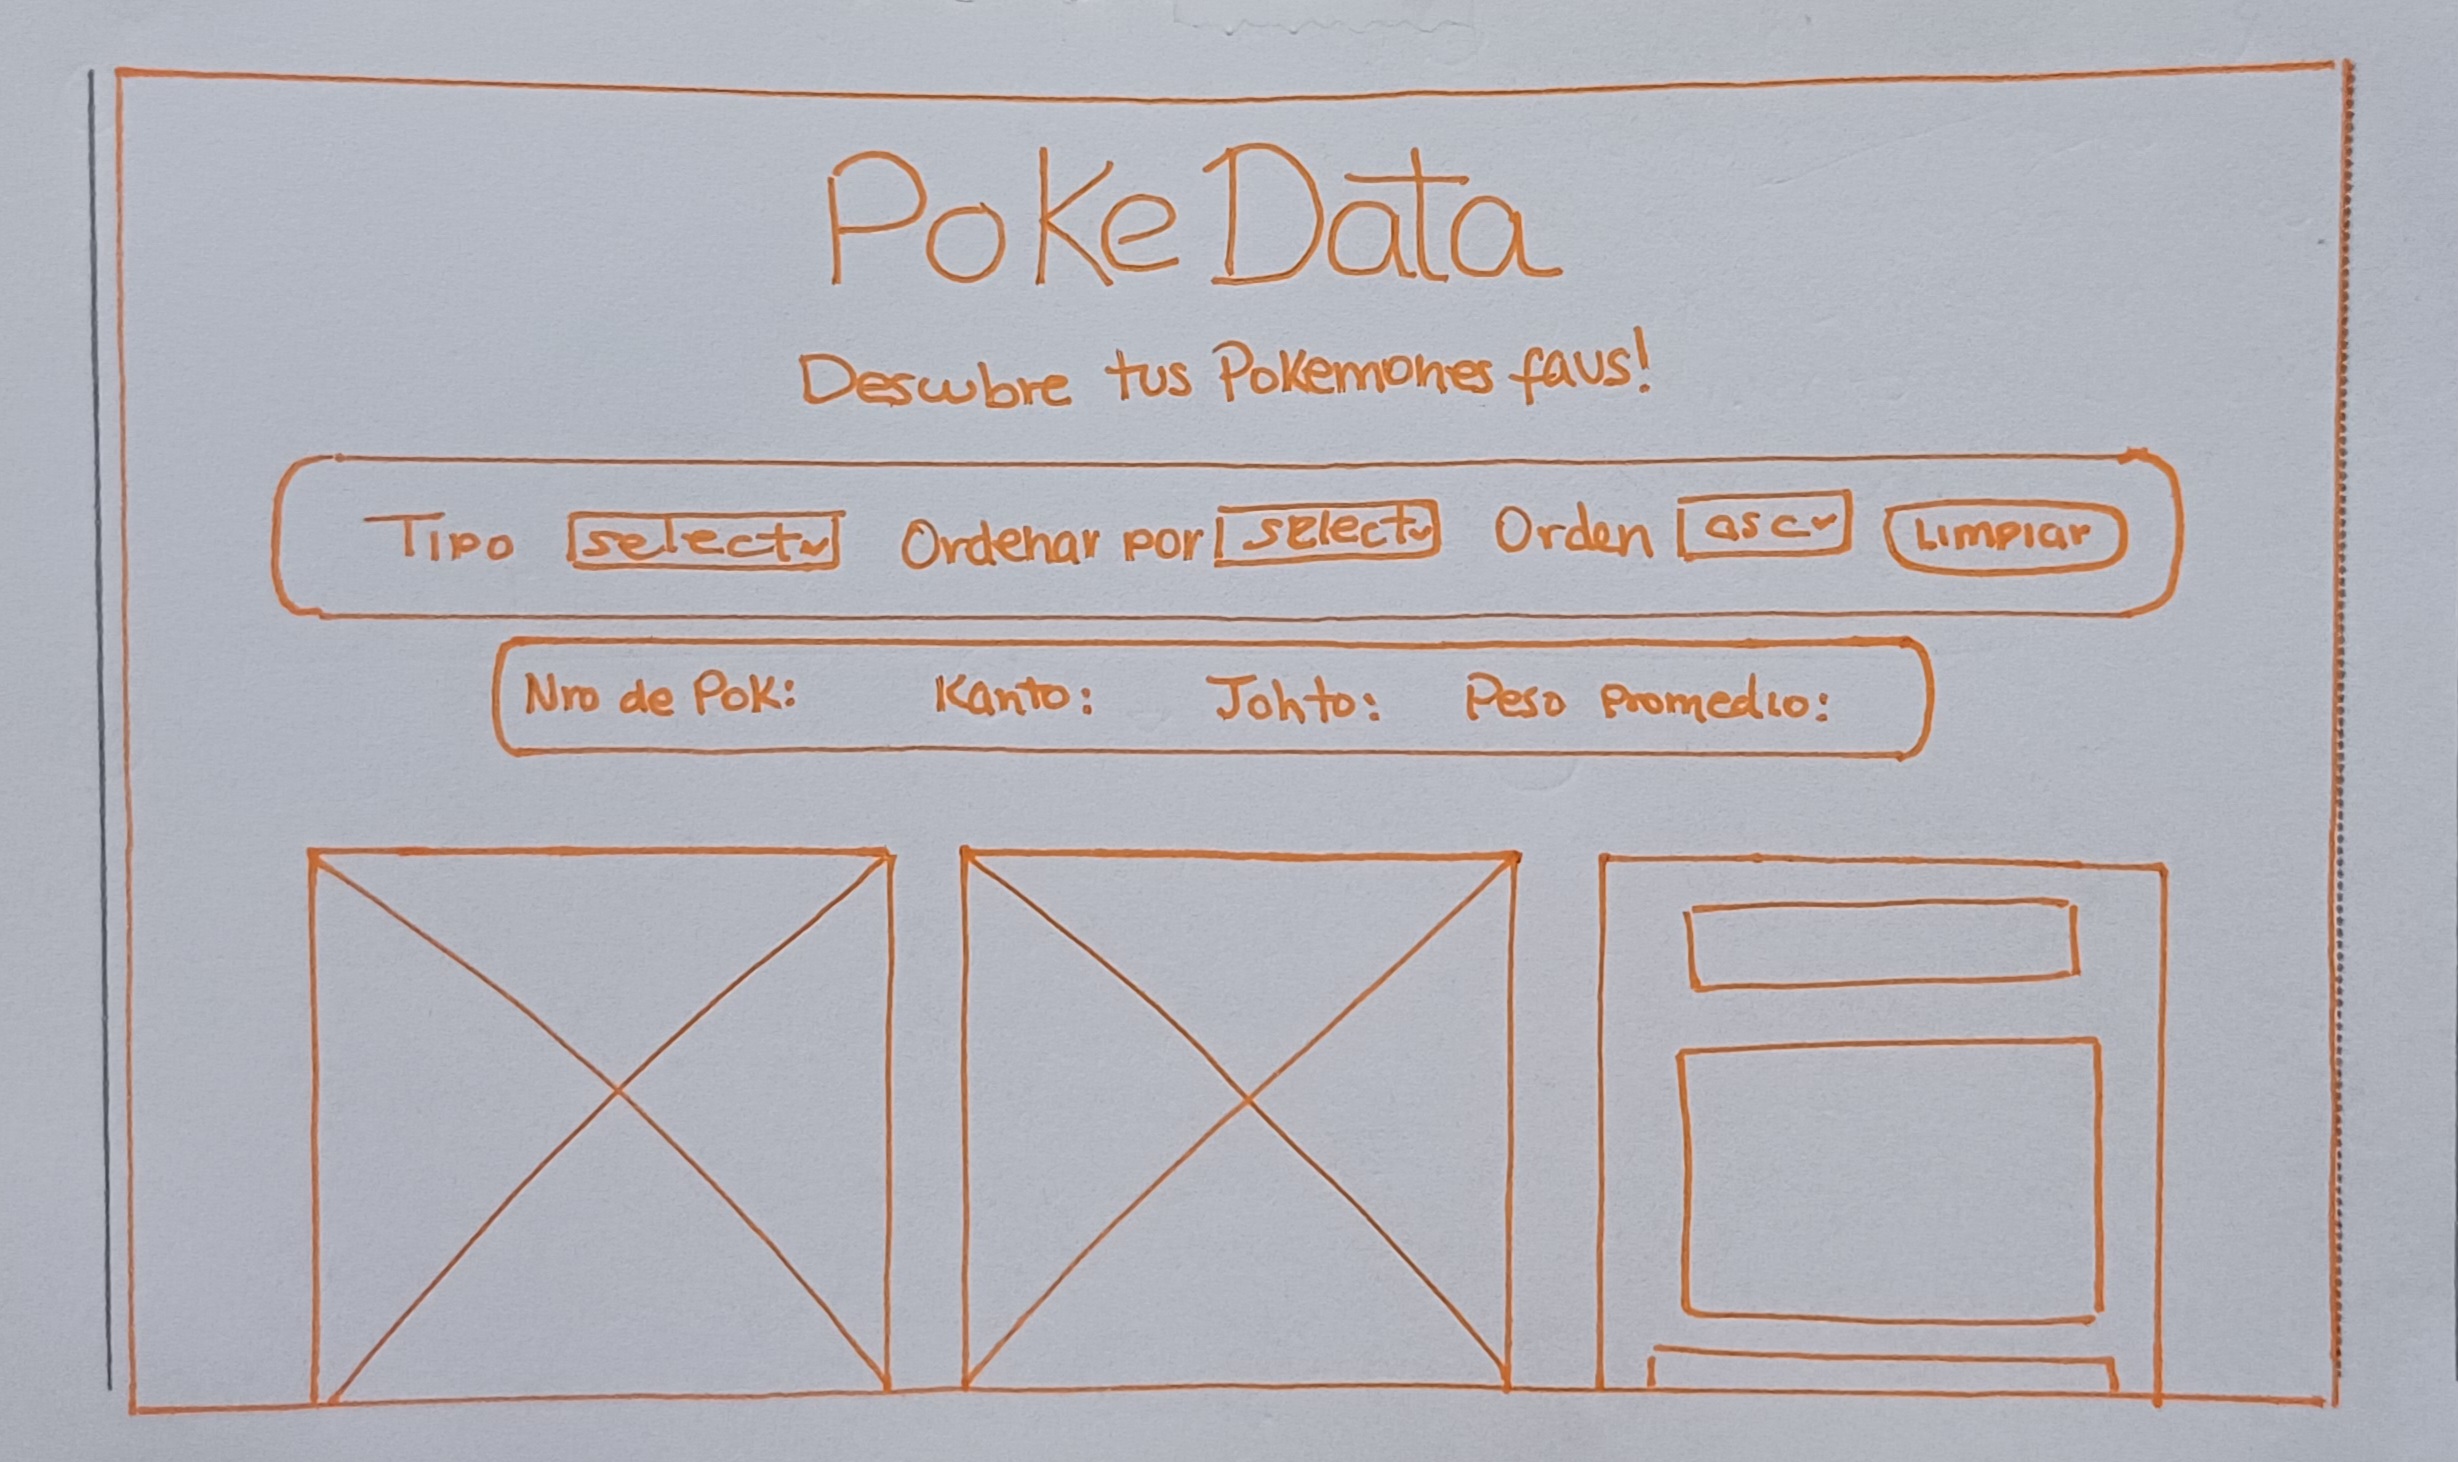 PokeData
Descubre tus Pokemones favs!
Tipo select Ordenar por select Orden asc Limpiar
Nro de Pok: Kanto: Johto: Peso promedio: